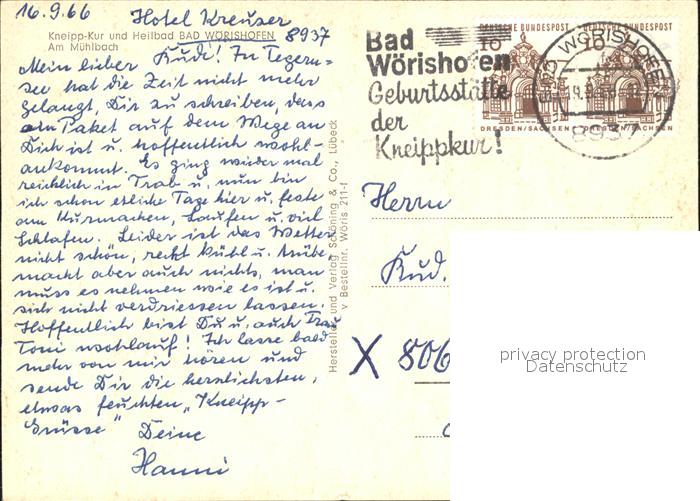 16.9.66 Hotel Kreuzer
Kneipp-Kur und Heilbad BAD WÖRISHOFEN 8937
Am Mühlbach
Mein lieber Rudi! In Tegern-
see hat die Zeit nicht mehr
gelangt, Dir zu schreiben, dass
ein Paket auf dem Wege an
Dich ist u. hoffentlich wohl-
ankommt. Es ging wieder mal
reichlich im Trab u. nun bin
ich schon etliche Tage hier u. feste
am Kurmachen, Laufen u. viel
Schlafen. Leider ist das Wetter
nicht schön, recht kühl u. trübe
macht aber auch nichts, man
muss es nehmen wie es ist u.
sich nicht verdriessen lassen.
Hoffentlich bist Du u. auch Frau
Toni wohlauf! Ich lasse bald
mehr von mir hören und
sende Dir die herzlichsten,
etwas feuchten „Kneipp-
Grüsse"
Deine
Hanni
Hersteller und Verlag Schöning & Co., Lübeck
v Bestellnr. Wöris 211-f
Bad
Wörishofen
Geburtsstätte
der
Kneippkur!
DEUTSCHE BUNDESPOST DEUTSCHE BUNDESPOST
DRESDEN/SACHSEN DRESDEN/SACHSEN
WÖRISHOFEN
8937
Herrn
Rud.
X 806
privacy protection
Datenschutz